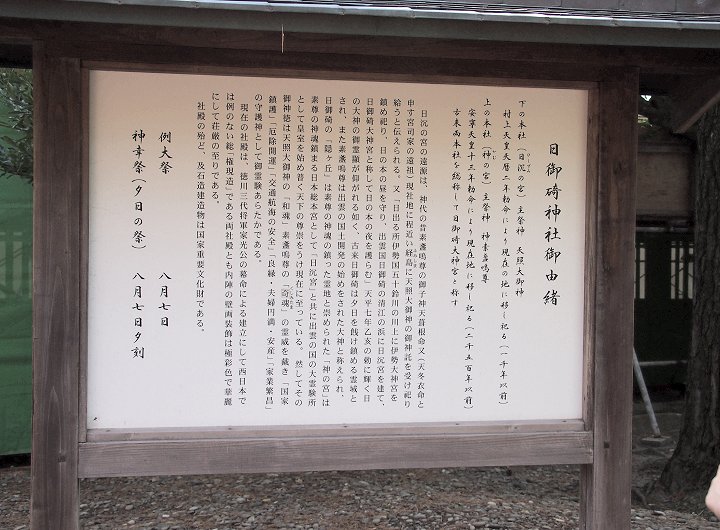 日御碕神社御由緒
下の本社(日沉の宮)主祭神 天照大御神
村上天皇天暦二年勅命により現在の地に移し祀る(一千年以前)
上の本社(神の宮)主祭神 神素盞嗚尊
安寧天皇十三年勅命により現在地に移し祀る(二千五百年前)
古来両本社を総称して日御碕大神宮と称す
日沉の宮の遠源は、神代の昔素盞嗚尊の御子神天葺根命又(天冬衣命と
申す宮司家の遠祖)現社地に程近い経島に天照大御神の御神託を受け祀り
給うと伝えられる。又「日出る所伊勢国五十鈴川の川上に伊勢大神宮を
鎮め祀り、日の本の昼を守り、出雲国日御碕の清江の浜に日沉宮を建て、
日御碕大神宮と称して日の本の夜を護らむ」天平七年乙亥の勅に輝く日
の大神の御霊顕が仰がれる如く、古来日御碕は夕日を餞け鎮める霊域と
され、また素盞嗚尊は出雲の国土開発の始めをされた大神と称えられ、
日御碕の「隠ヶ丘」は素尊の神魂の鎮った霊地と崇められた「神の宮」は
素尊の神魂鎮まる日本総本宮として「日沉宮」と共に出雲の国の大霊験所
として皇室を始め普く天下の尊崇をうけ現在に至っている。然してその
御神徳は天照大御神の「和魂」素盞嗚尊の「奇魂」の霊威を戴き「国家
鎮護」「厄除開運」「交通航海の安全」「良縁・夫婦円満・安産」「家業繁昌」
の守護神として御霊験あらたかである。
現在の社殿は、徳川三代将軍家光公の幕命による建立にして西日本で
は例のない総「権現造」である両社殿とも内陣の壁画装飾は極彩色で華麗
にして荘厳の至りである。
社殿の殆ど、及石造建造物は国家重要文化財である。
例大祭 八月七日
神幸祭(夕日の祭) 八月七日夕刻